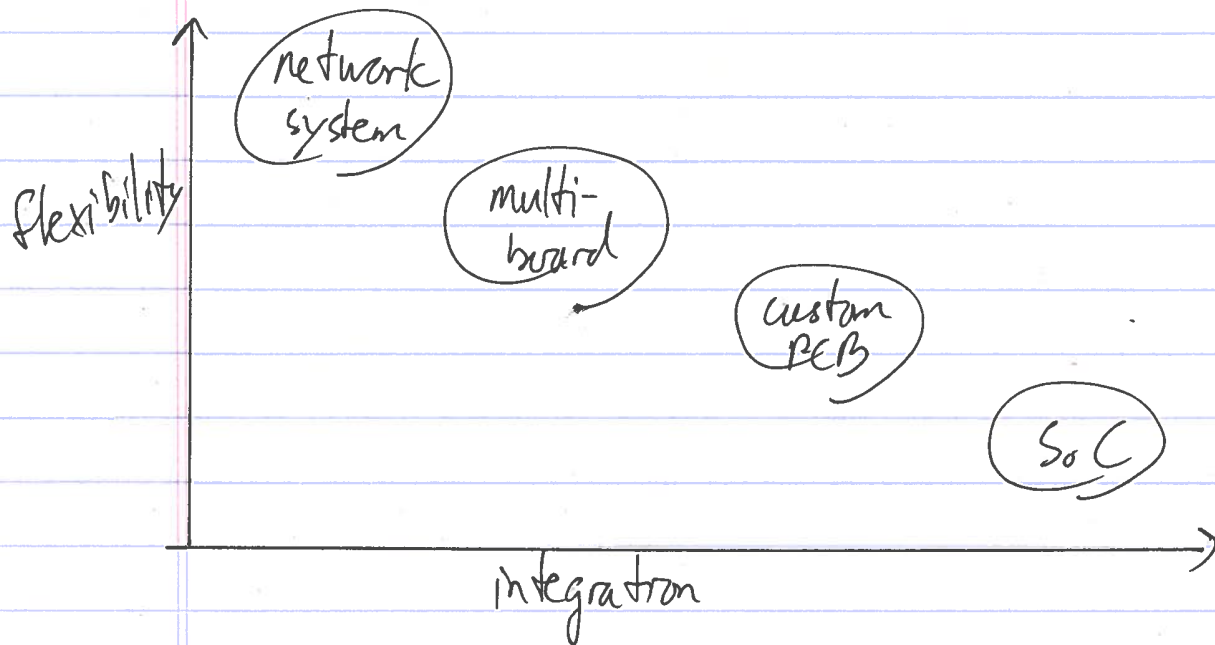 network
system
flexibility
multi-
board
custom
PCB
SoC
integration